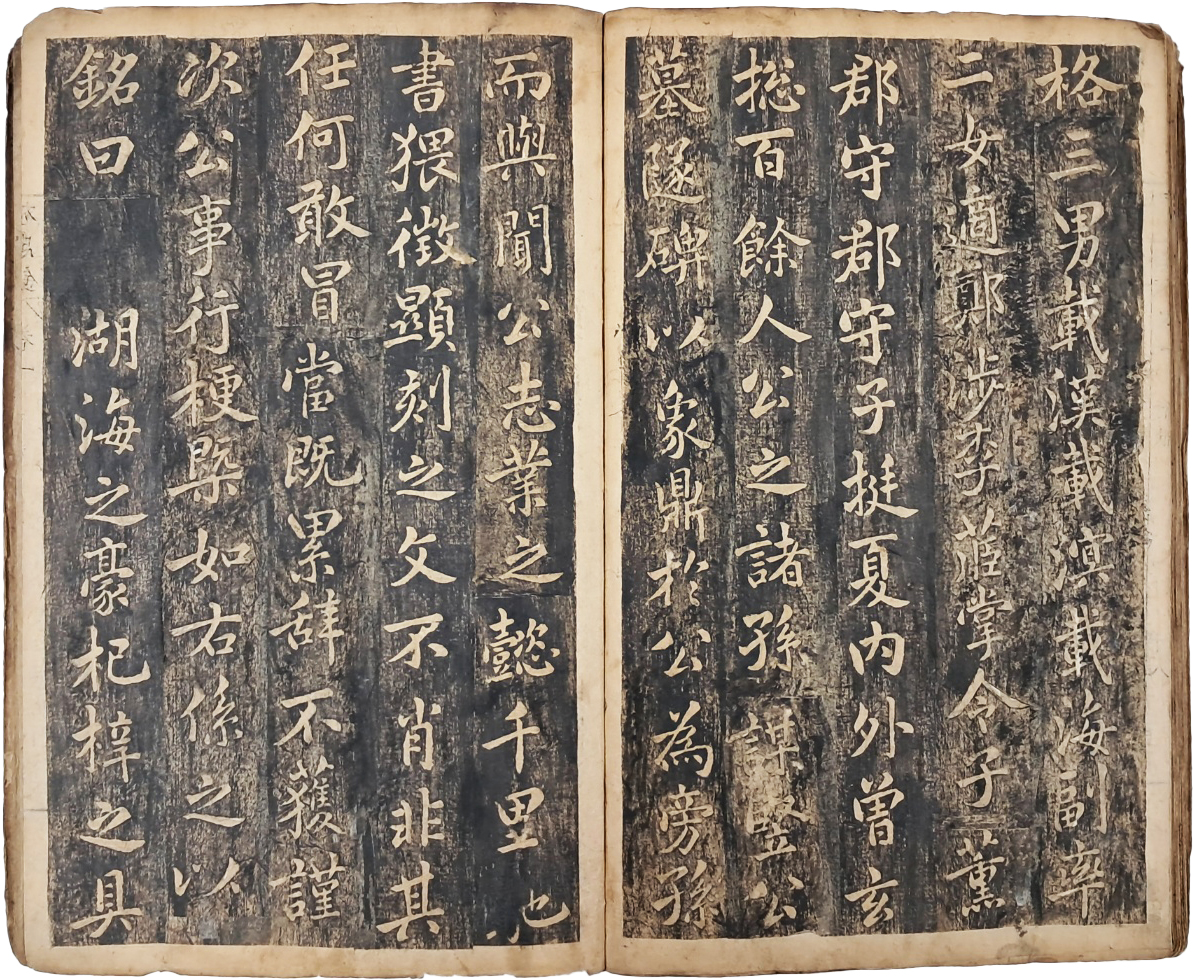 格三男載漢載溟載海副卒
二女適鄭涉李掌令子薰
郡守郡守子挺夏內外曾玄
摠百餘人公之諸孫謀竪公
墓隧碑以象鼎於公為旁孫
而與聞公志業之懿千里也
書猥徵顯刻之文不肖非其
任何敢冒當既累辞不獲謹
次公事行梗槩如右係之以
銘曰 湖海之豪杞梓之具